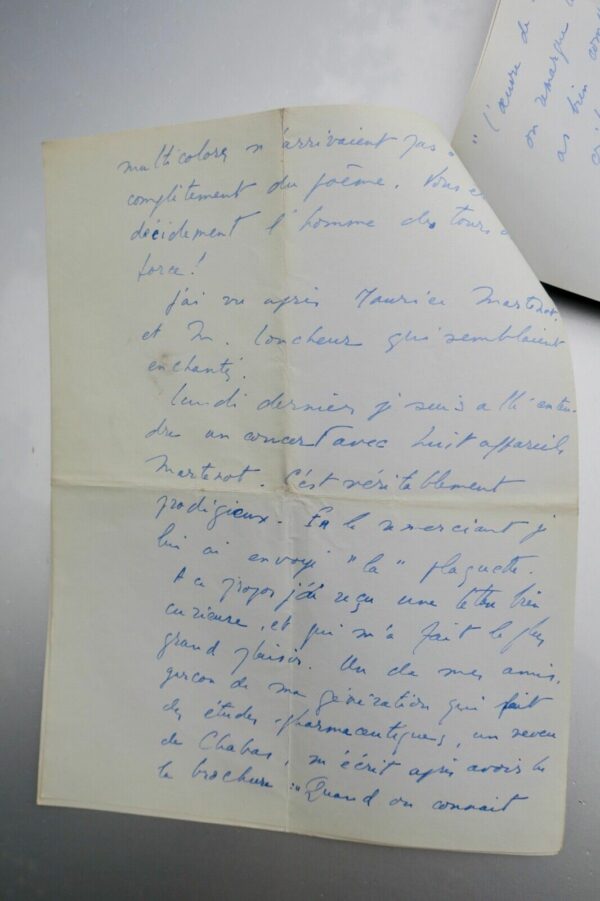 multicolores n'arrivaient pas à
complètement du poème. Vous ê
décidement l'homme des tours d
force!
J'ai vu après Maurice Martenot,
et M. Loucheur qui semblaient
enchantés.
Lundi dernier j'suis allé enten-
dre un concert avec huit appareils
Martenot. C'est véritablement
prodigieux. En le remerciant j'
lui ai envoyé "la" plaquette.
A ce propos j'ai reçu une lettre bien
curieuse, et qui m'a fait le plus
grand plaisir. Un de mes amis,
garçon de ma génération qui fait
des études pharmaceutiques, un neveu
de Chabas, m'écrit après avoir lu
la brochure: "Quand on connait
"l'œuvre de
on remarque
as bien comp